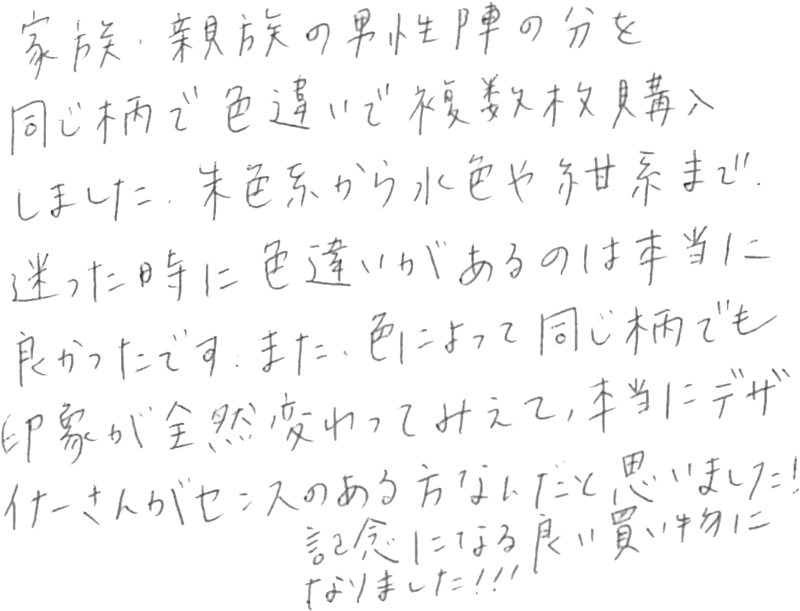 家族、親族の男性陣の分を
同じ柄で色違いで複数枚購入
しました。朱色系から水色や紺系まで。
迷った時に色違いがあるのは本当に
良かったです。また、色によって同じ柄でも
印象が全然変わってみえて、本当にデザ
イナーさんがセンスのある方なんだと思いました!
記念になる良い買い物に
なりました!!!